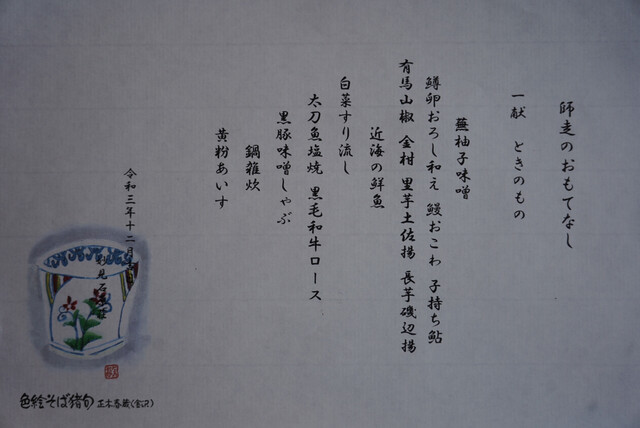 師走のおもてなし
一献　ときのもの
蕪柚子味噌
鱒卵おろし和え　鰻おこわ　子持ち鮎
有馬山椒　金柑　里芋土佐揚　長芋磯辺揚
近海の鮮魚
白菜すり流し
太刀魚塩焼　黒毛和牛ロース
黒豚味噌しゃぶ
鍋雑炊
黄粉あいす
令和三年十二月
色絵そば猪句　正木春蔵(金沢)